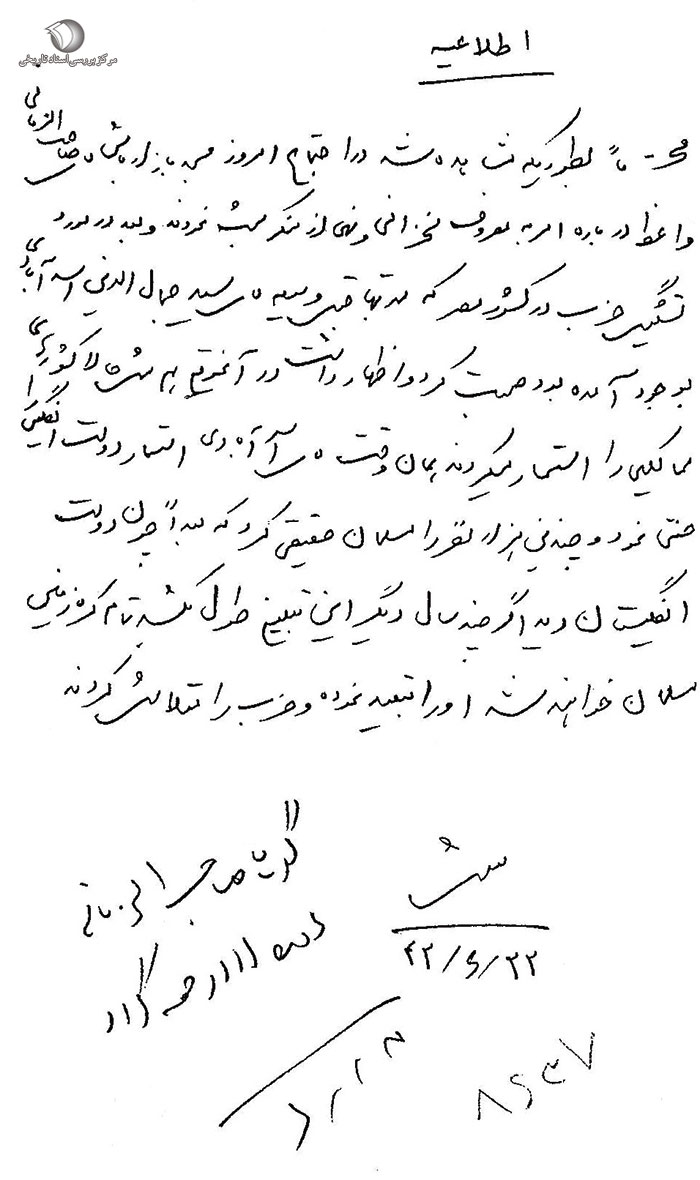 مرکز بررسی اسناد تاریخی
اطلاعیه
محترماً بطوریکه مشاهده شد در اجتماع امروز مسجد بازار آقای صاحب الزمانی
واعظ در باره امر به معروف سخنرانی و نهی از منکر صحبت نمودند و بعد در مورد
تشکیل حزب در کشور مصر که مدتها قبل وسیله سید جمال الدین اسد آبادی
بوجود آمده بود صحبت کرد و اظهار داشت در آنموقع هر
ممالکی را استعمار میکردند همان وقت اسد آبادی استعمار دولت انگلیس را
خنثی نمود و چندین هزار نفر را مسلمان حقیقی کرد که بعداً چون دولت
انگلستان دید اگر چند سال دیگر این تبلیغ طول بکشد تمام کره زمین
مسلمان خواهند شد او را تبعید نموده و حزب را متلاشی کردند
۴۲/۶/۲۲